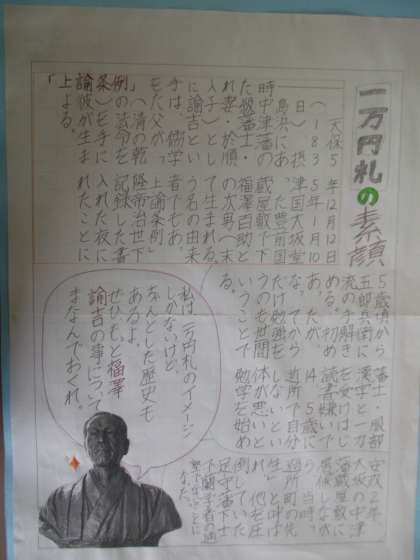 「一万円札の素顔
「上諭条例」を手に入れた時
天保5年12月12日
(1835年1月10
日)摂津国大坂堂
島浜にあった豊前国
中津藩の蔵屋敷で下
級藩士の福屋百助と
妻・於順の次男(末
子)として生まれる。
諭吉という名の由来
は、儒学者でもあっ
た父が「上諭条例
」(清の乾隆帝治世下
の法令を記録した書
)を手に入れた夜に
彼が生まれたことに
よる。
5歳頃から藩士・服部
五郎兵衛に漢学と一刀
流の手解きを受けはじ
める。初めは読書嫌いで
あったが、14、5歳に
なってから近所で自分
だけ勉強をしないとい
うのも世間体が悪いと
いうことで勉学を始め
る。
私は一万円札のイメージ
しかないけど、
ちゃんとした歴史も
あるよ。
ぜひもっと福澤
諭吉の事について
まなんでおくれ。
安政2年、
大坂の中津
藩蔵屋敷に
居候してい
た当時、
過所町の先
生と呼ば
れ、他を圧
倒していた
足守藩下士
で蘭学者の適
塾で学ぶことに
なった